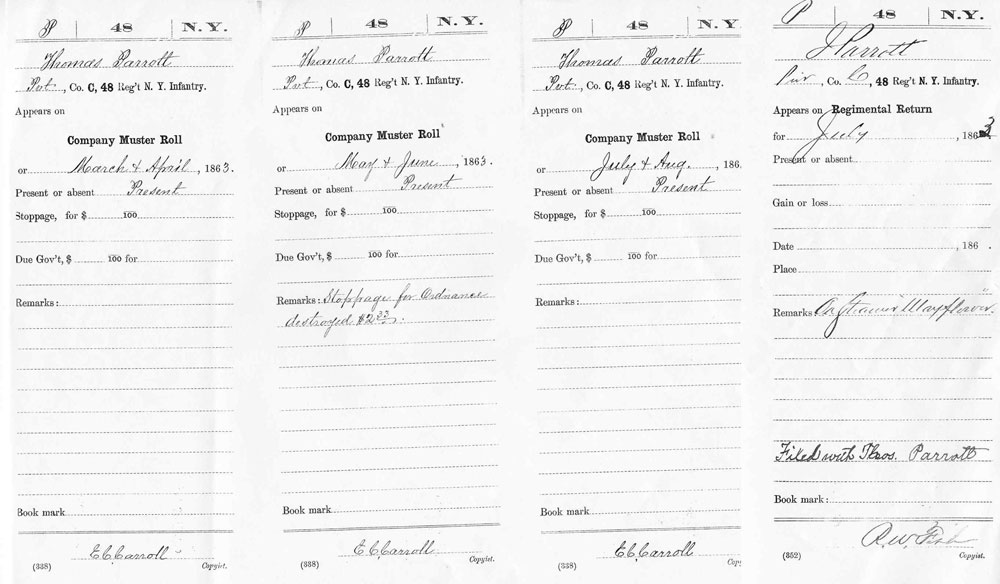 P 48 N.Y.
Thomas Parrott
Pvt., Co. C, 48 Reg't N. Y. Infantry.
Appears on
Company Muster Roll
or March & April, 1863.
Present or absent Present
Stoppage, for $ 100
Due Gov't, $ 100 for
Remarks:
Book mark
E C Carroll
(338) Copyist.
P 48 N.Y.
Thomas Parrott
Pvt., Co. C, 48 Reg't N. Y. Infantry.
Appears on
Company Muster Roll
or May & June, 1863.
Present or absent Present
Stoppage, for $ 100
Due Gov't, $ 100 for
Remarks: Stoppage for Ordnance
destroyed $2.33
Book mark
E C Carroll
(338) Copyist.
P 48 N.Y.
Thomas Parrott
Pvt., Co. C, 48 Reg't N. Y. Infantry.
Appears on
Company Muster Roll
or July & Aug., 186
Present or absent Present
Stoppage, for $ 100
Due Gov't, $ 100 for
Remarks:
Book mark
E C Carroll
(338) Copy
P 48 N.Y.
J Parrott
Priv, Co. C, 48 Reg't N. Y. Infantry.
Appears on Regimental Return
for July, 1863
Present or absent
Gain or loss
Date , 186 .
Place
Remarks On Steamer "Mayflower".
Filed with Thos. Parrott
Book mark:
R. W. Fish
(352) Copyist.